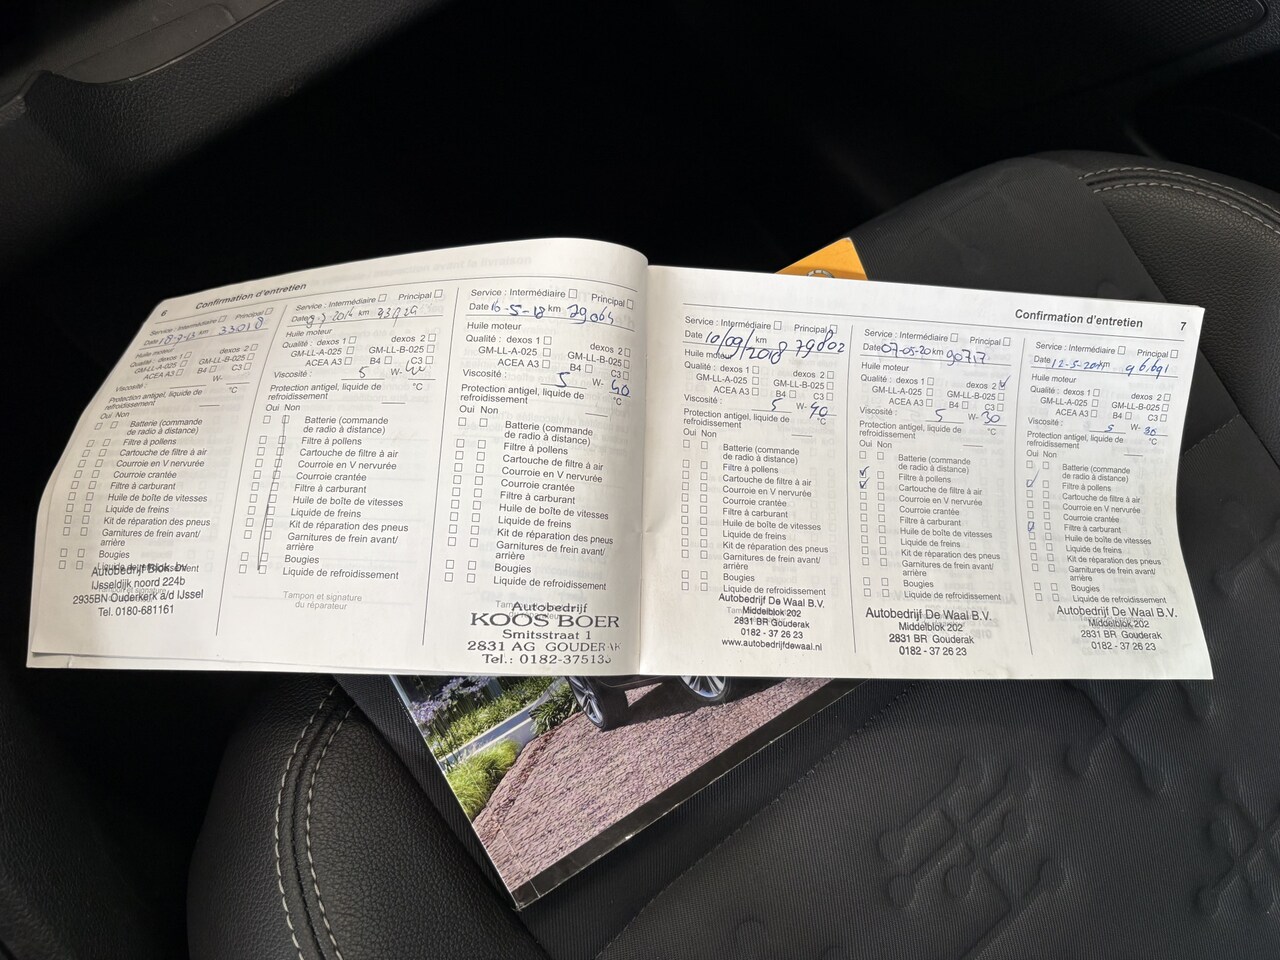 6
Confirmation d'entretien
Service : Intermédiaire Principal
Date km 33018
Huile moteur
Qualité : dexos 1 dexos 2
GM-LL-A-025 GM-LL-B-025
ACEA A3 B4 C3
Viscosité : W-
Protection antigel, liquide de
refroidissement °C
Oui Non
Batterie (commande
de radio à distance)
Filtre à pollens
Cartouche de filtre à air
Courroie en V nervurée
Courroie crantée
Filtre à carburant
Huile de boîte de vitesses
Liquide de freins
Kit de réparation des pneus
Garnitures de frein avant/
arrière
Bougies
Liquide de refroidissement
Autobedrijf Blok bv
IJsseldijk noord 224b
2935BN Ouderkerk a/d IJssel
Tel. 0180-681161
Service : Intermédiaire Principal
Date km
Huile moteur
Qualité : dexos 1 dexos 2
GM-LL-A-025 GM-LL-B-025
ACEA A3 B4 C3
Viscosité : 5 W- 40
Protection antigel, liquide de
refroidissement °C
Oui Non
Batterie (commande
de radio à distance)
Filtre à pollens
Cartouche de filtre à air
Courroie en V nervurée
Courroie crantée
Filtre à carburant
Huile de boîte de vitesses
Liquide de freins
Kit de réparation des pneus
Garnitures de frein avant/
arrière
Bougies
Liquide de refroidissement
Tampon et signature
du réparateur
Service : Intermédiaire Principal
Date 16-5-18 km 79064
Huile moteur
Qualité : dexos 1 dexos 2
GM-LL-A-025 GM-LL-B-025
ACEA A3 B4 C3
Viscosité : 5 W- 40
Protection antigel, liquide de
refroidissement °C
Oui Non
Batterie (commande
de radio à distance)
Filtre à pollens
Cartouche de filtre à air
Courroie en V nervurée
Courroie crantée
Filtre à carburant
Huile de boîte de vitesses
Liquide de freins
Kit de réparation des pneus
Garnitures de frein avant/
arrière
Bougies
Liquide de refroidissement
Autobedrijf
KOOS BOER
Smitsstraat 1
2831 AG GOUDERAK
Tel.: 0182-375135
Confirmation d'entretien 7
Service : Intermédiaire Principal
Date 10/09/2018 km 79802
Huile moteur
Qualité : dexos 1 dexos 2
GM-LL-A-025 GM-LL-B-025
ACEA A3 B4 C3
Viscosité : 5 W- 40
Protection antigel, liquide de
refroidissement °C
Oui Non
Batterie (commande
de radio à distance)
Filtre à pollens
Cartouche de filtre à air
Courroie en V nervurée
Courroie crantée
Filtre à carburant
Huile de boîte de vitesses
Liquide de freins
Kit de réparation des pneus
Garnitures de frein avant/
arrière
Bougies
Liquide de refroidissement
Autobedrijf De Waal B.V.
Middelblok 202
2831 BR Gouderak
0182 - 37 26 23
www.autobedrijfdewaal.nl
Service : Intermédiaire Principal
Date 07-05-20 km 90717
Huile moteur
Qualité : dexos 1 dexos 2
GM-LL-A-025 GM-LL-B-025
ACEA A3 B4 C3
Viscosité : 5 W- 30
Protection antigel, liquide de
refroidissement °C
Oui Non
Batterie (commande
de radio à distance)
Filtre à pollens
Cartouche de filtre à air
Courroie en V nervurée
Courroie crantée
Filtre à carburant
Huile de boîte de vitesses
Liquide de freins
Kit de réparation des pneus
Garnitures de frein avant/
arrière
Bougies
Liquide de refroidissement
Autobedrijf De Waal B.V.
Middelblok 202
2831 BR Gouderak
0182 - 37 26 23
Service : Intermédiaire Principal
Date km 96691
Huile moteur
Qualité : dexos 1 dexos 2
GM-LL-A-025 GM-LL-B-025
ACEA A3 B4 C3
Viscosité : 5 W- 30
Protection antigel, liquide de
refroidissement °C
Oui Non
Batterie (commande
de radio à distance)
Filtre à pollens
Cartouche de filtre à air
Courroie en V nervurée
Courroie crantée
Filtre à carburant
Huile de boîte de vitesses
Liquide de freins
Kit de réparation des pneus
Garnitures de frein avant/
arrière
Bougies
Liquide de refroidissement
Autobedrijf De Waal B.V.
Middelblok 202
2831 BR Gouderak
0182 - 37 26 23